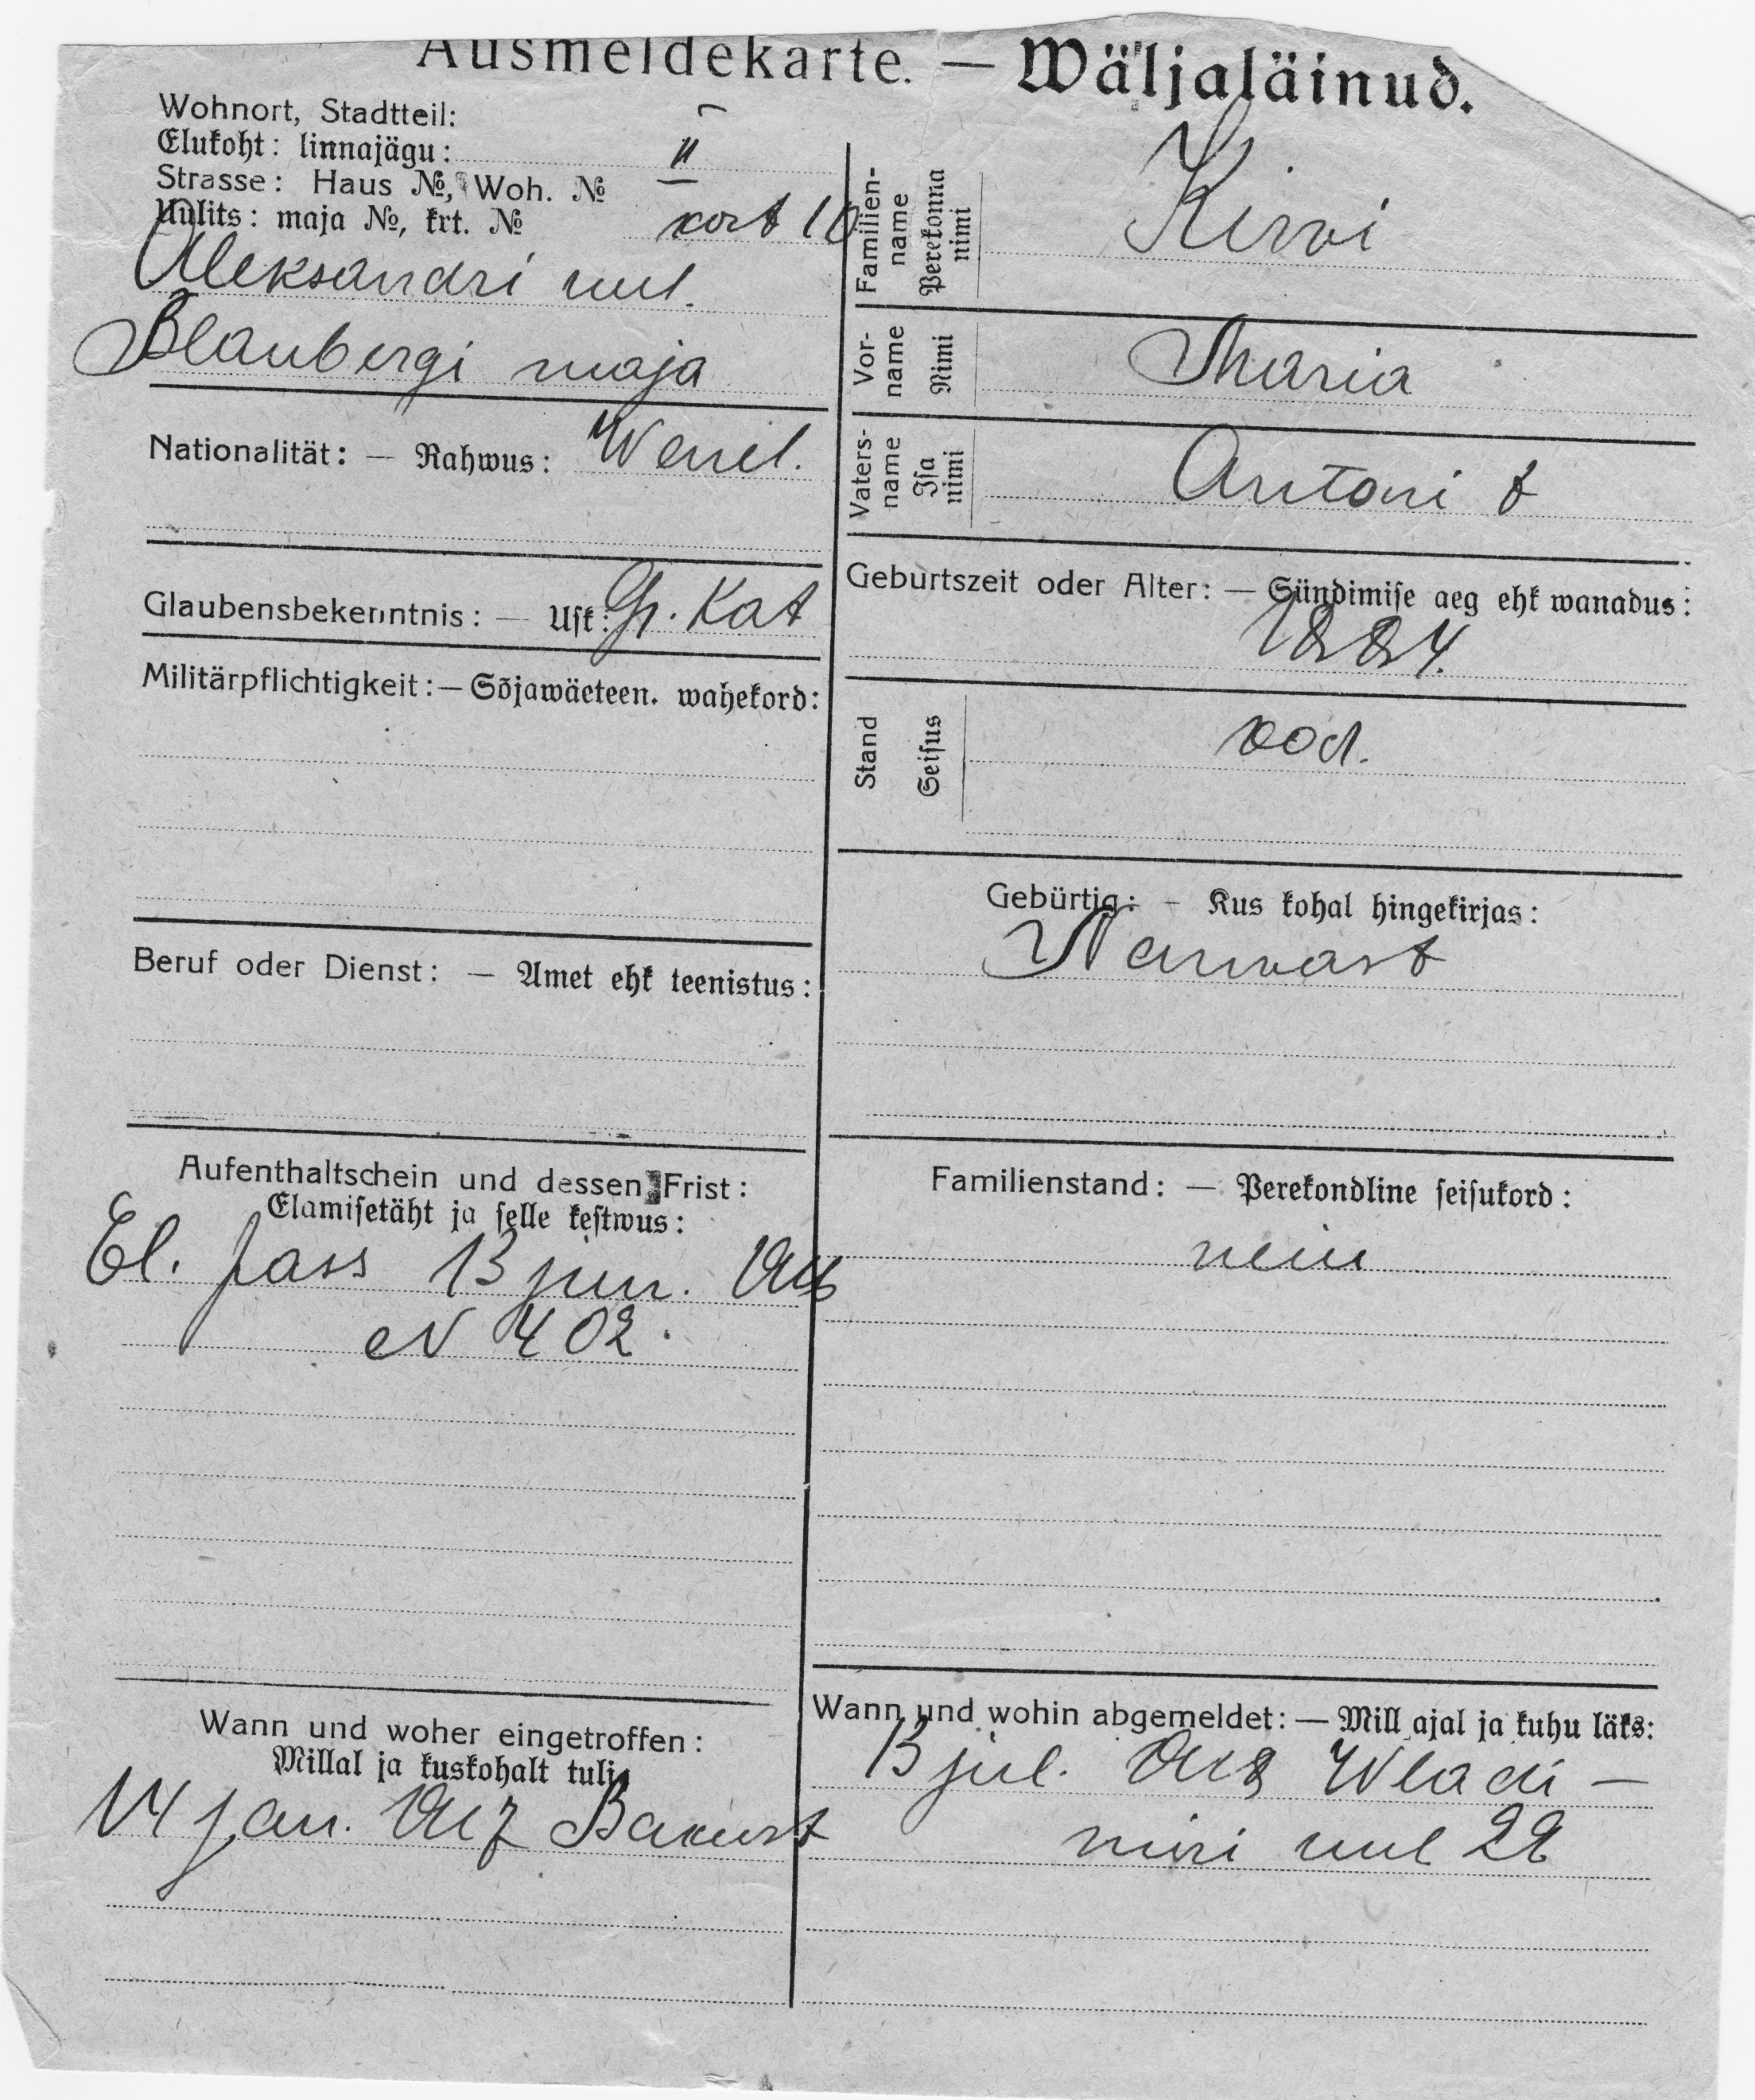 Ausmeldekarte. — Wäljaläinud.
Wohnort, Stadtteil:
Elukoht: linnajägu: II
Strasse: Haus №, Woh. №
Uulits: maja №, krt. № kort 10
Aleksandri uul.
Blaubergi maja
Nationalität: — Rahwus: Wenel.
Glaubensbekenntnis: — Usk: Gr. Kat
Militärpflichtigkeit: — Sõjawäeteen. wahekord:
Beruf oder Dienst: — Amet ehk teenistus:
Aufenthaltschein und dessen Frist:
Elamisetäht ja selle kestwus:
El. pass 13 jun.
N 402.
Wann und woher eingetroffen:
Millal ja kuskohalt tuli
14 jan. 1917
Familien-
name
Perekonna
nimi
Kirwi
Vor-
name
Nimi
Maria
Vaters-
name
Isa
nimi
Antoni t
Geburtszeit oder Alter: — Sündimise aeg ehk wanadus:
1884.
Stand
Seisus
Gebürtig: — Kus kohal hingekirjas:
Narwast
Familienstand: — Perekondline seisukord:
Wann und wohin abgemeldet: — Mill ajal ja kuhu läks:
13 jul. 1918 Wladi-
miri uul 22